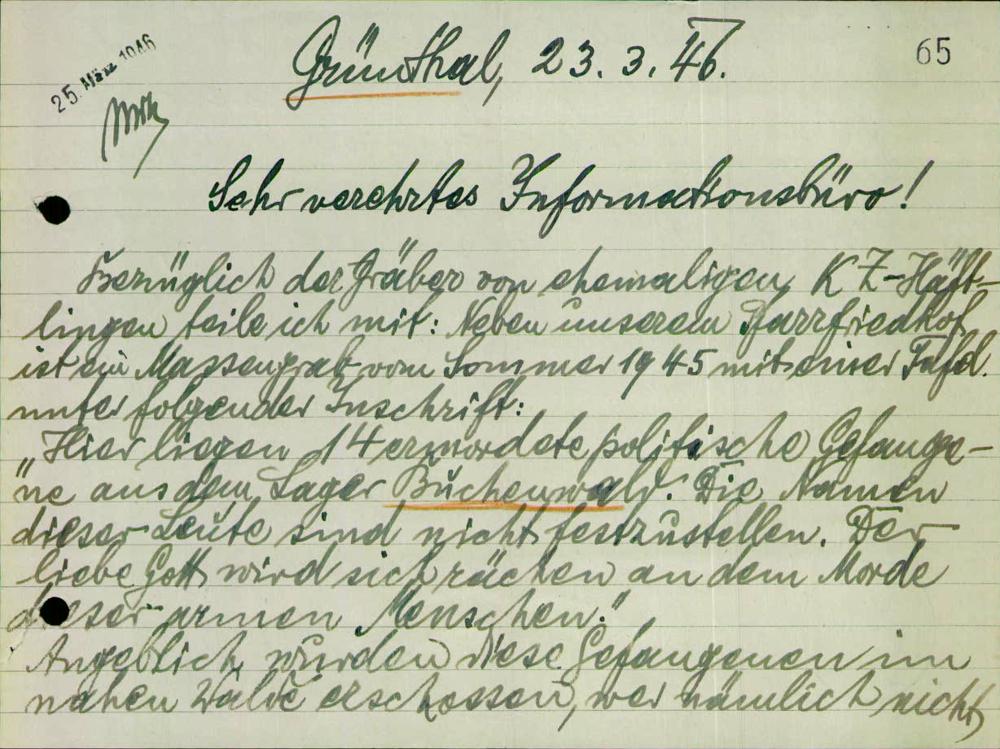 25. März 1946
Grünthal, 23. 3. 46.
65
Sehr verehrtes Informationsbüro!
Bezüglich der Gräber von ehemaligen KZ-Häft-
lingen teile ich mit: Neben unserem Pfarrfriedhof
ist ein Massengrab vom Sommer 1945 mit einer Tafel
unter folgender Inschrift:
„Hier liegen 14 ermordete politische Gefange-
ne aus dem Lager Buchenwald. Die Namen
dieser Leute sind nicht festzustellen. Der
liebe Gott wird sich rächen an dem Morde
dieser armen Menschen."
Angeblich wurden diese Gefangenen im
nahen Walde erschossen, wer nämlich nicht